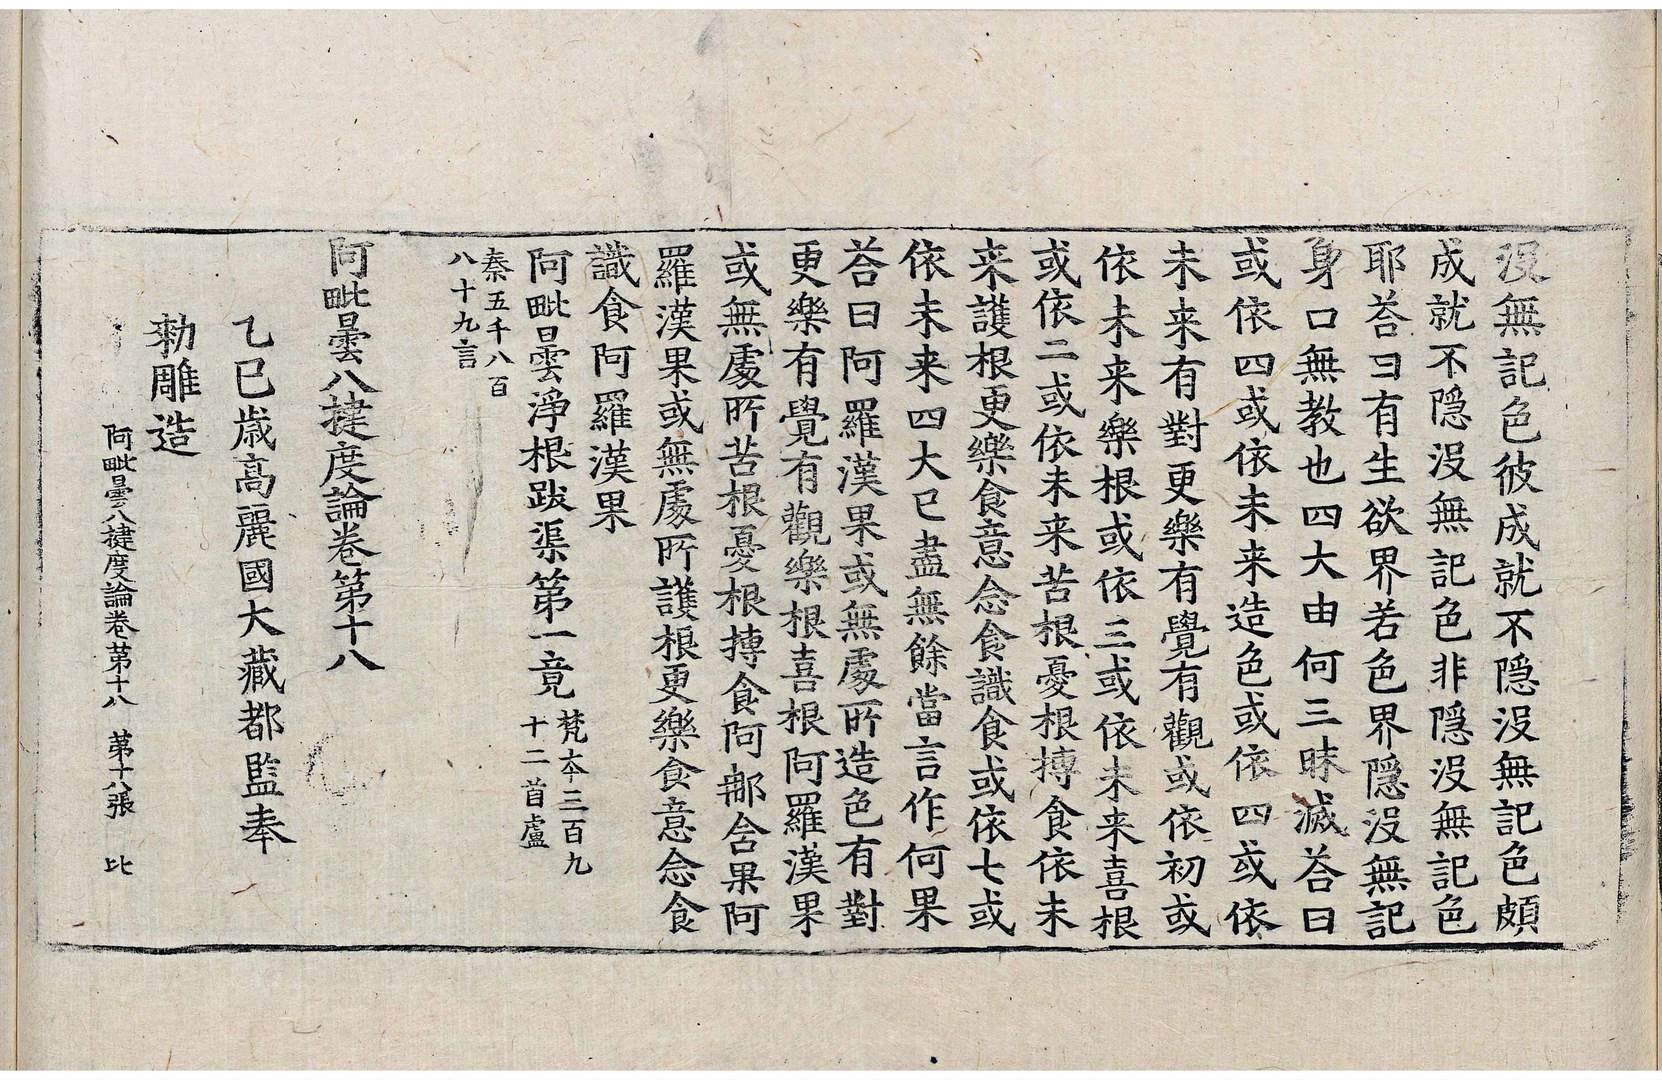 沒無記色彼成就不隱沒無記色頗
成就不隱沒無記色非隱沒無記色
耶荅曰有生欲界若色界隱沒無記
身口無教也四大由何三昧滅荅曰
或依四或依未来造色或依四或依
未来有對更樂有覺有觀或依初或
依未来樂根或依三或依未来喜根
或依二或依未来苦根憂根摶食依未
来護根更樂食意念食識食或依七或
依未来四大已盡無餘當言作何果
荅曰阿羅漢果或無處所造色有對
更樂有覺有觀樂根喜根阿羅漢果
或無處所苦根憂根摶食阿那含果阿
羅漢果或無處所護根更樂食意念食
識食阿羅漢果
阿毗曇淨根跋渠第一竟 梵本三百九
十二首盧
秦五千八百
八十九言
阿毗曇八揵度論卷第十八
乙巳歲高麗國大藏都監奉
勅雕造
阿毗曇八揵度論卷第十八 第十八張 比